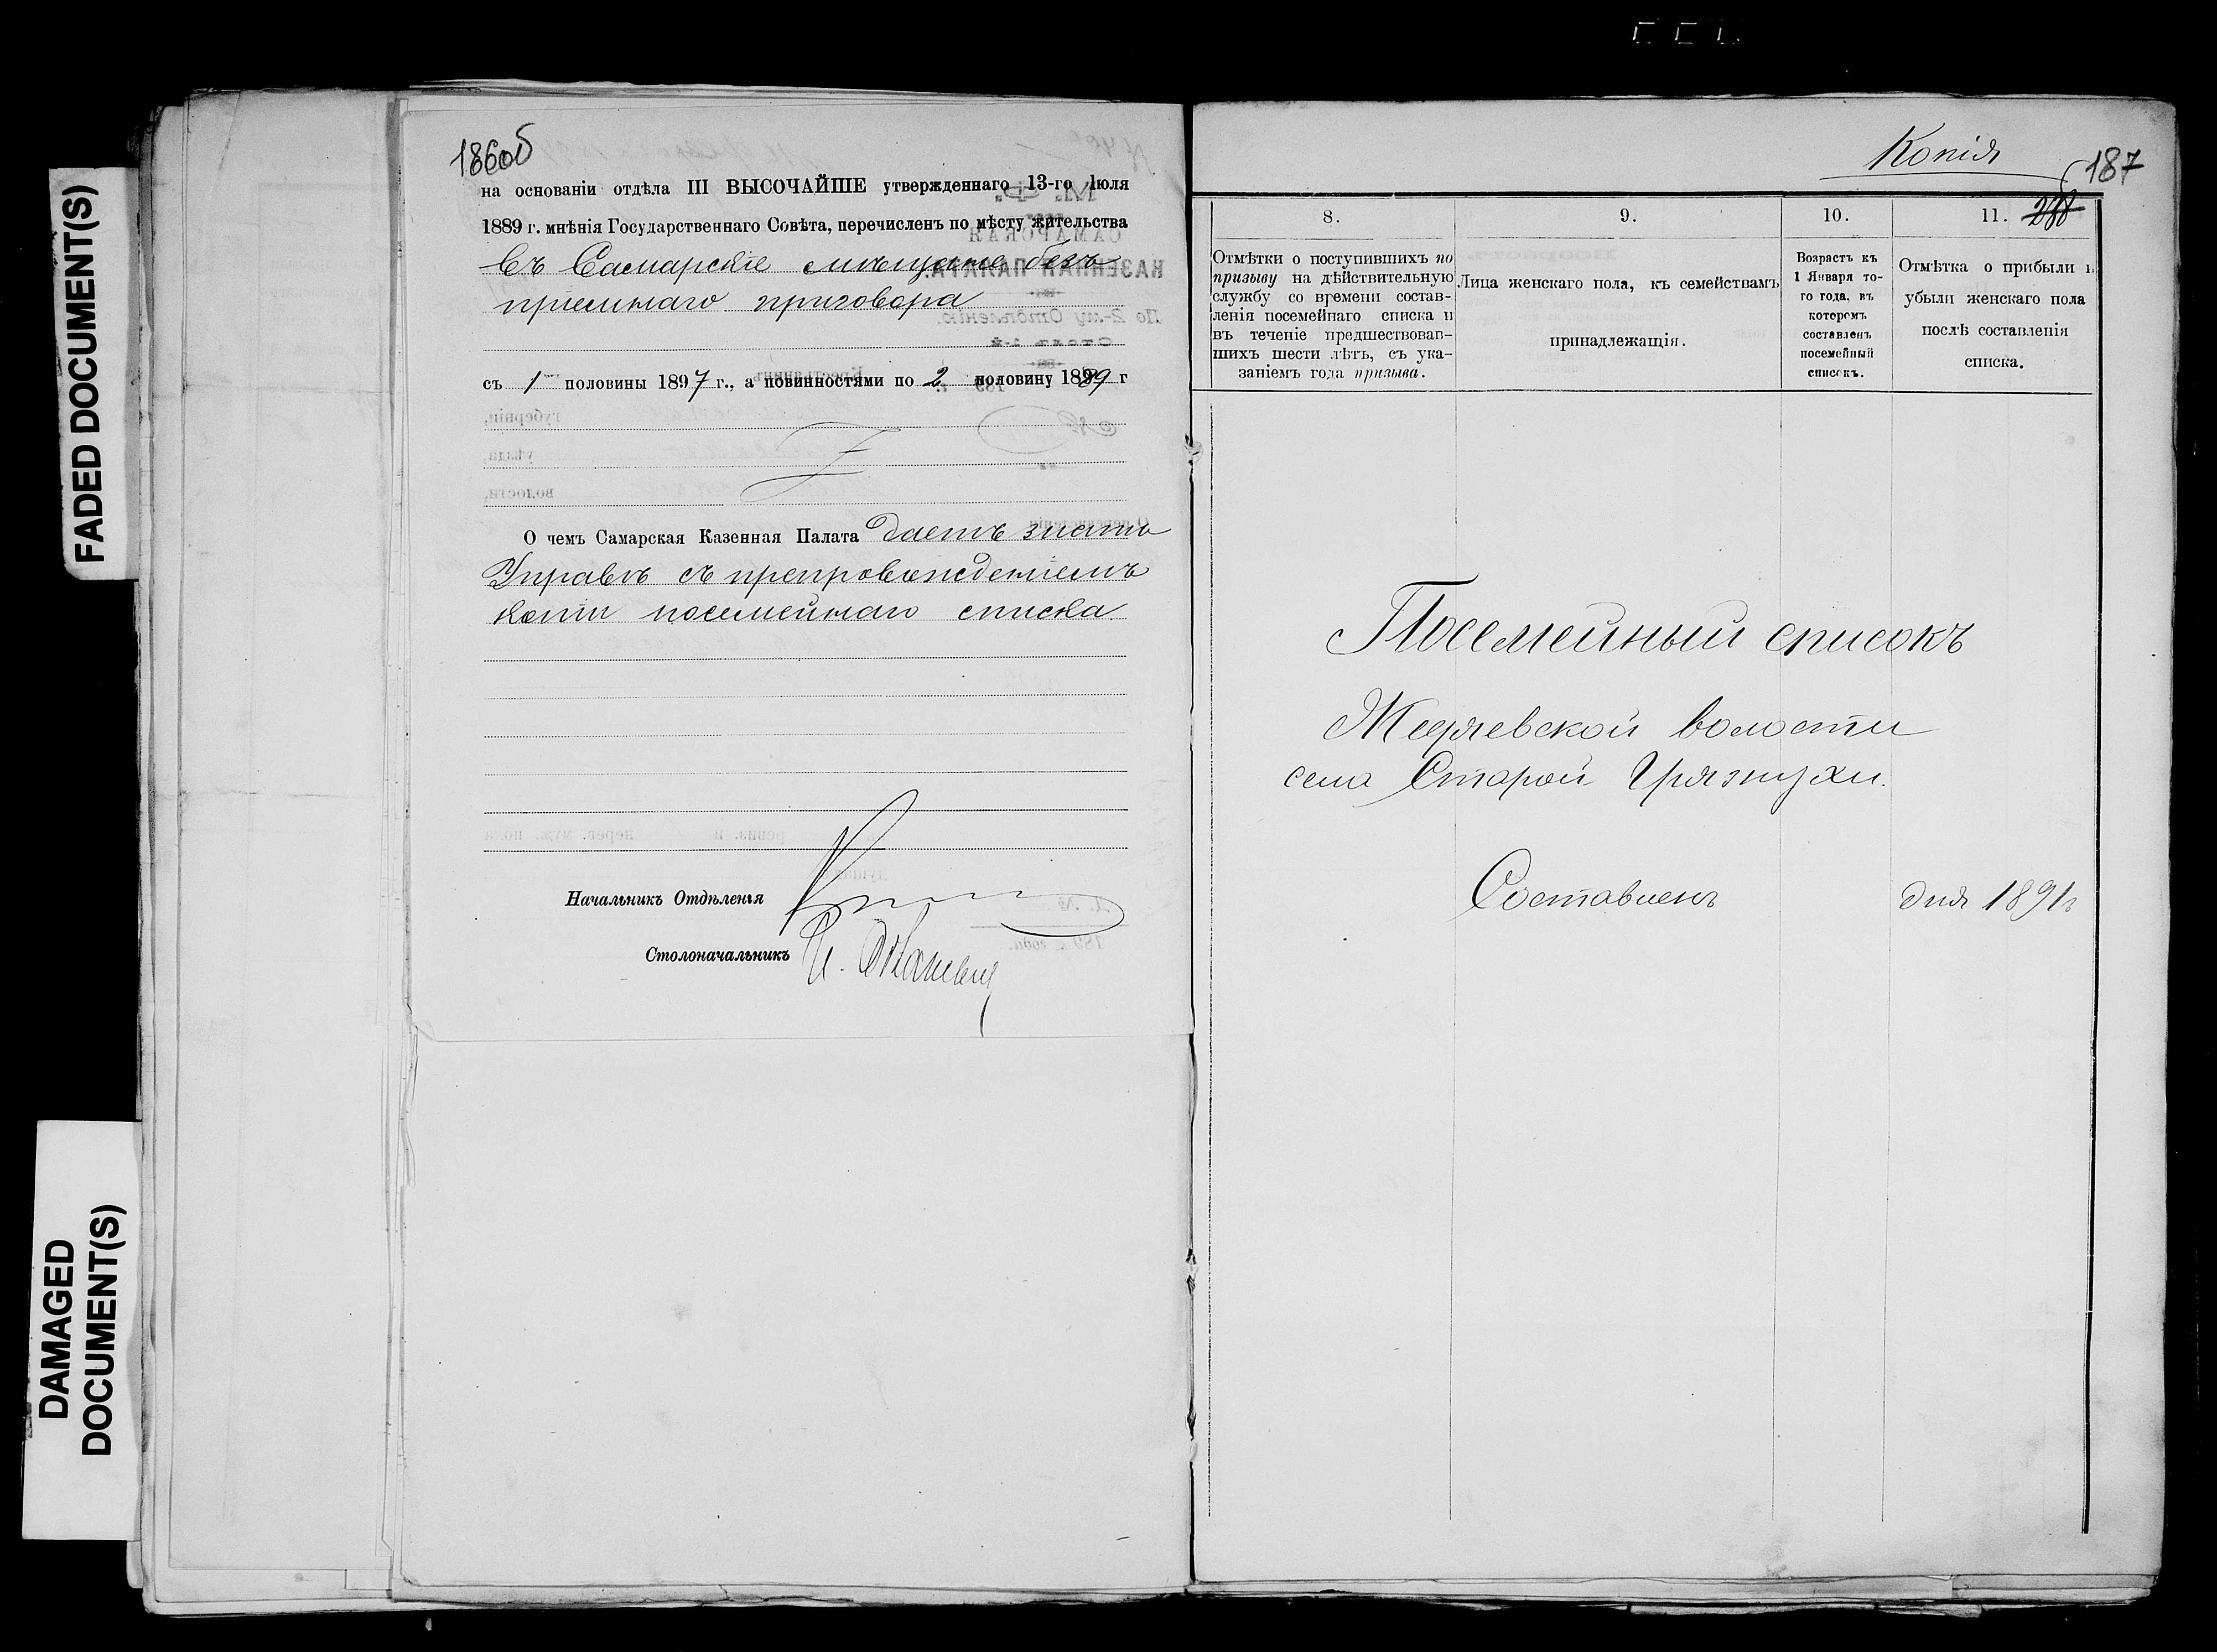 FADED DOCUMENT(S)
DAMAGED
DOCUMENT(S)
186об
на основаніи отдѣла III ВЫСОЧАЙШЕ утвержденнаго 13-го Іюля
1889 г. мнѣнія Государственнаго Совѣта, перечисленъ по мѣсту жительства
въ Самарскіе мѣщане безъ
пріемнаго приговора
съ 1 половины 1897 г., а повинностями по 2 половину 1899 г
О чемъ Самарская Казенная Палата даетъ знать
Управѣ съ препровожденіемъ
копіи посемейнаго списка.
Начальникъ Отдѣленія
Столоначальникъ И.
Копія
187
8.
Отмѣтки о поступившихъ по
призыву на дѣйствительную
службу со времени состав-
ленія посемейнаго списка и
въ теченіе предшествовав-
шихъ шести лѣтъ, съ ука-
заніемъ года призыва.
9.
Лица женскаго пола, къ семействамъ
принадлежащія.
10.
Возрастъ къ
1 Января то-
го года, въ
которомъ
составленъ
посемейный
списокъ.
11.
Отмѣтка о прибыли и
убыли женскаго пола
послѣ составленія
списка.
Посемейный списокъ
волости
села Старой Грязнухи.
Составленъ дня 1891г